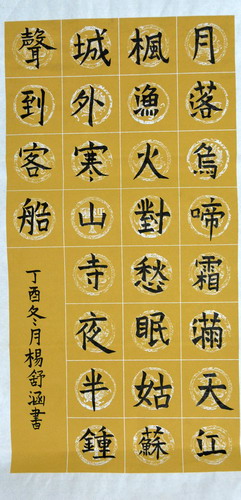 月落烏啼霜滿大江
楓漁火對愁眠姑蘇
城外寒山寺夜半鍾
聲到客船
丁酉冬月楊舒涵書